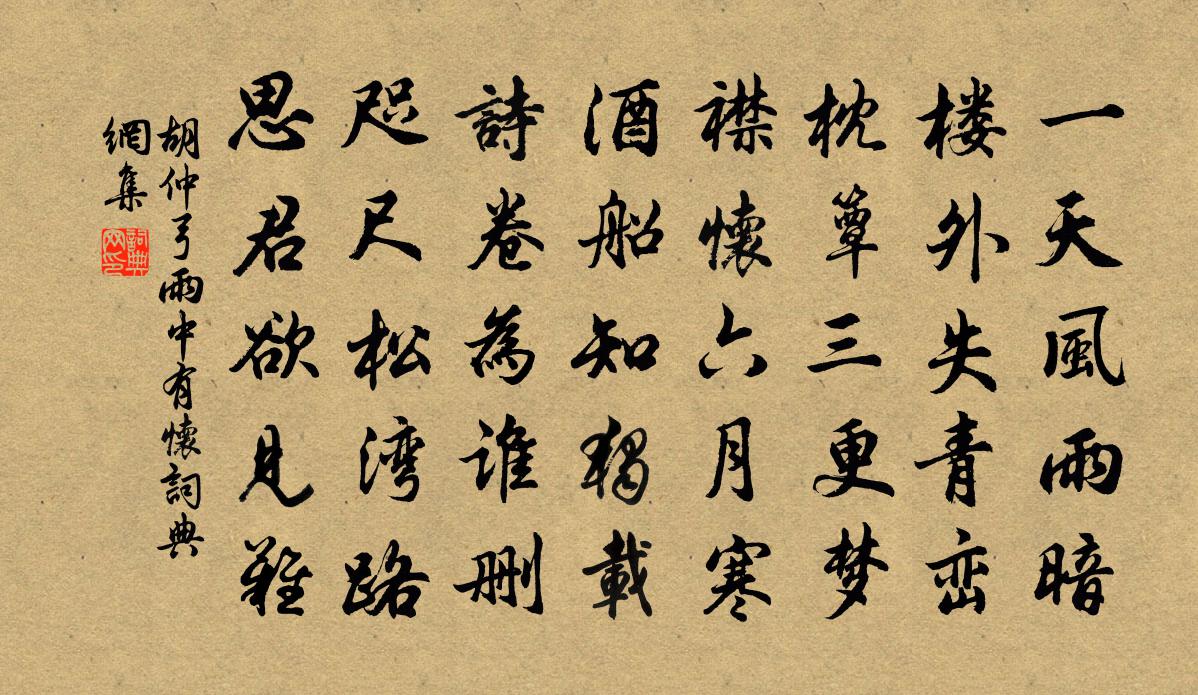 一天風雨暗
楼外失青峦
枕簟三更梦
襟懷六月寒
酒船知獨載
詩卷為誰删
咫尺松湾路
思君欲見難
胡仲弓雨中有懷詞典
網集
詞典
网印